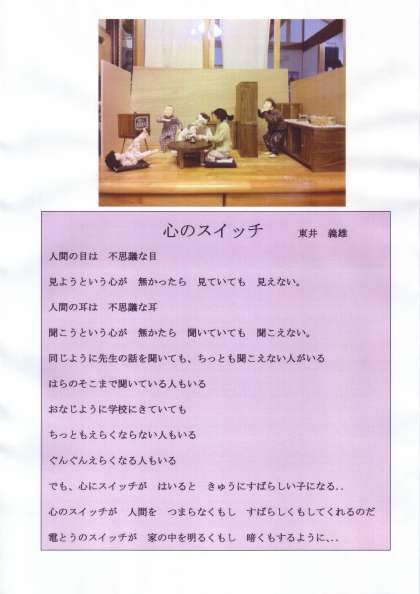 心のスイッチ　東井　義雄
人間の目は　不思議な目
見ようという心が　無かったら　見ていても　見えない。
人間の耳は　不思議な耳
聞こうという心が　無かたら　聞いていても　聞こえない。
同じように先生の話を聞いても、ちっとも聞こえない人がいる
はらのそこまで聞いている人もいる
おなじように学校にきていても
ちっともえらくならない人もいる
ぐんぐんえらくなる人もいる
でも、心にスイッチが　はいると　きゅうにすばらしい子になる．．
心のスイッチが　人間を　つまらなくもし　すばらしくもしてくれるのだ
電とうのスイッチが　家の中を明るくもし　暗くもするように、、、